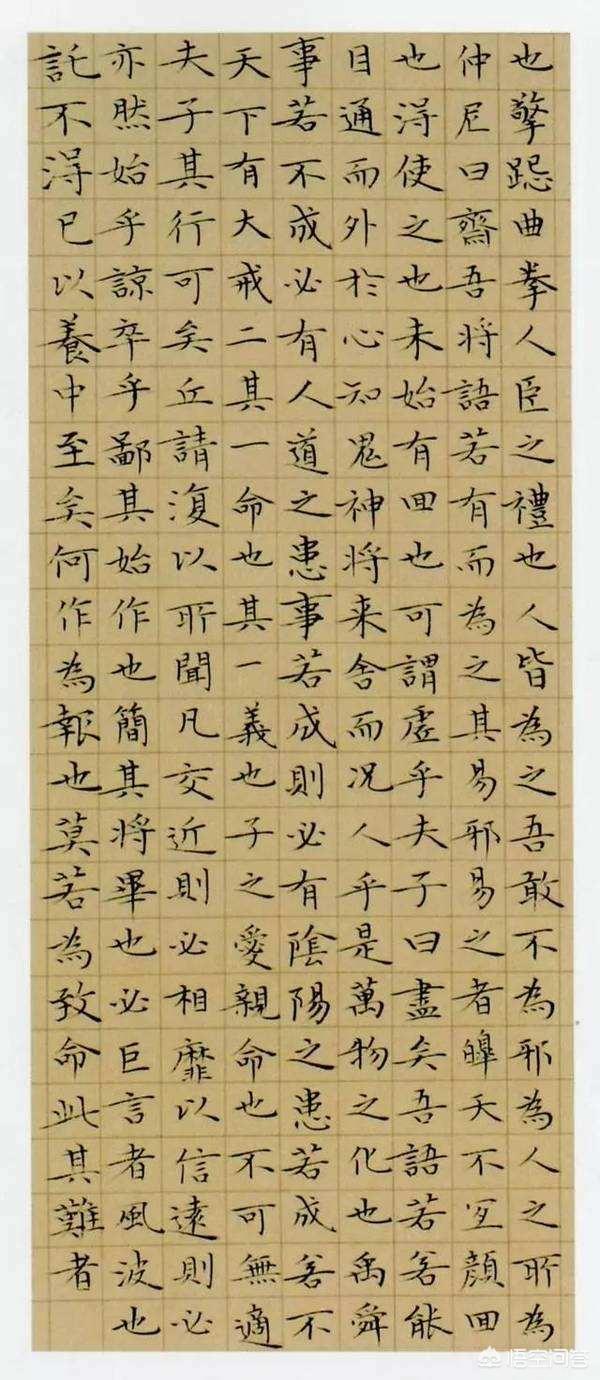 也擎跽曲拳人臣之禮也人皆為之吾敢不為邪為人之所為
仲尼曰齋吾將語若有而為之其易邪易之者皞天不宜顏回
也得使之也未始有回也可謂虛乎夫子曰盡矣吾語若若能
目通而外於心知鬼神將来舍而况人乎是萬物之化也禹舜
事若不成必有人道之患事若成則必有陰陽之患若成若不
天下有大戒二其一命也其一義也子之愛親命也不可無適
夫子其行可矣丘請復以所聞凡交近則必相靡以信遠則必
亦然始乎諒卒乎鄙其始作也簡其將畢也必巨言者風波也
託不得已以養中至矣何作為報也莫若為致命此其難者
悟空问答